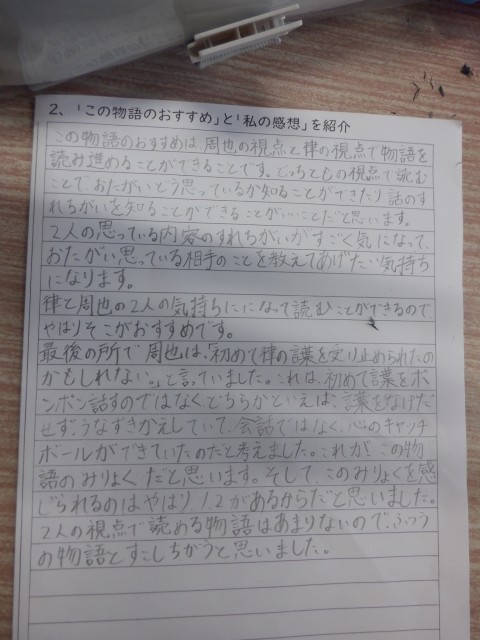 2、「この物語のおすすめ」と「私の感想」を紹介
この物語のおすすめは、周也の視点と律の視点で物語を
読み進めることができることです。どっちともの視点で読む
ことで、おたがいどう思っているか知ることができたり話のす
れちがいを知ることができることがいいことだと思います。
2人の思っている内容のすれちがいがすごく気になって、
おたがい思っている相手のことを教えてあげたい気持ち
になります。
律と周也の2人の気持ちにになって読むことができるので
やはりそこがおすすめです。
最後の所で周也は、「初めて律の言葉を受け止められたの
かもしれない。」と言っていました。これは、初めて言葉をポ
ンポン話すのではなくどちらかといえば、言葉をなげだ
せず、うなずきかえしていて、会話ではなく、心のキャッチ
ボールができていたのだと考えました。これが、この物
語のみりょくだと思います。そして、このみりょくを感
じられるのはやはり、1、2があるからだと思いました。
2人の視点で読める物語はあまりないので、ふつう
の物語とすこしちがうと思いました。